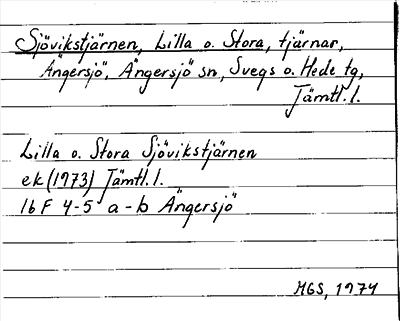 Sjövikstjärnen, Lilla o. Stora, tjärnar,
Ängersjö, Ängersjö sn, Svegs o. Hede tg,
Jämtl. l.
Lilla o. Stora Sjövikstjärnen
ek (1973) Jämtl. l.
16 F 4-5 a-b Ängersjö
MGS, 1974